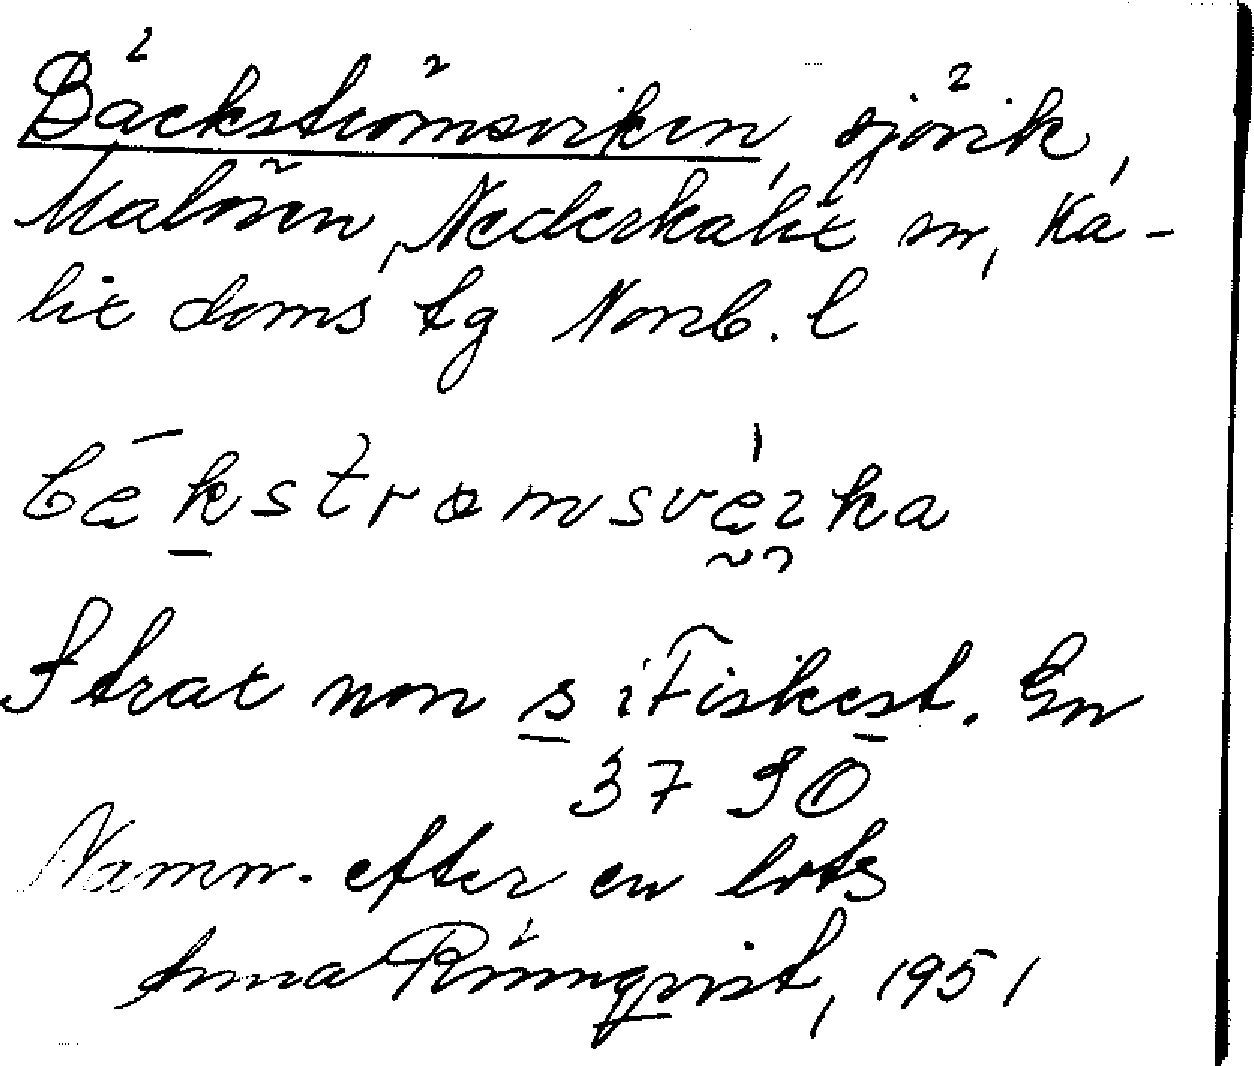 Bäckströmsviken, sjövik,
Malören, Nederkalix sn, Ka-
lix doms tg Norrb. l
Strax norr s i Fiskest. En
37 90
Namn. efter en lots
Anna Rönnqvist, 1951